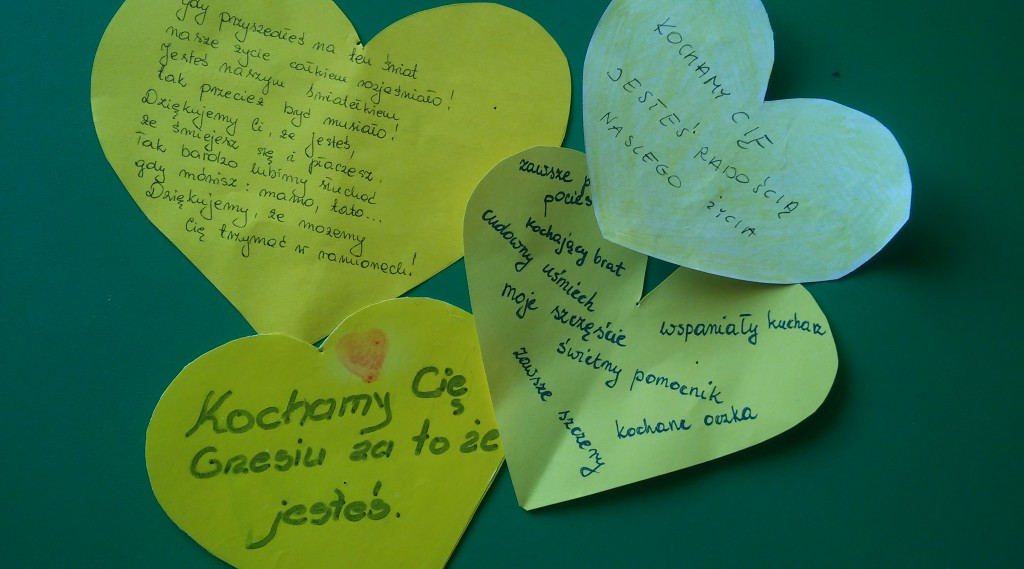 Gdy przyszedłeś na ten świat
nasze życie całkiem rozjaśniało!
Jesteś naszym światełkiem
tak przecież być musiało!
Dziękujemy Ci, że jesteś,
że śmiejesz się i płaczesz.
Tak bardzo lubimy słuchać
gdy mówisz: mamo, tato...
Dziękujemy, że możemy
Cię trzymać w ramionach!
KOCHAMY CIĘ
JESTEŚ RADOŚCIĄ
NASZEGO
ŻYCIA
zawsze
pocies
kochający brat
cudowny uśmiech
moje szczęście
wspaniały kucharz
świetny pomocnik
zawsze szczery
kochane oczka
Kochamy Cię
Grzesiu za to że
jesteś.